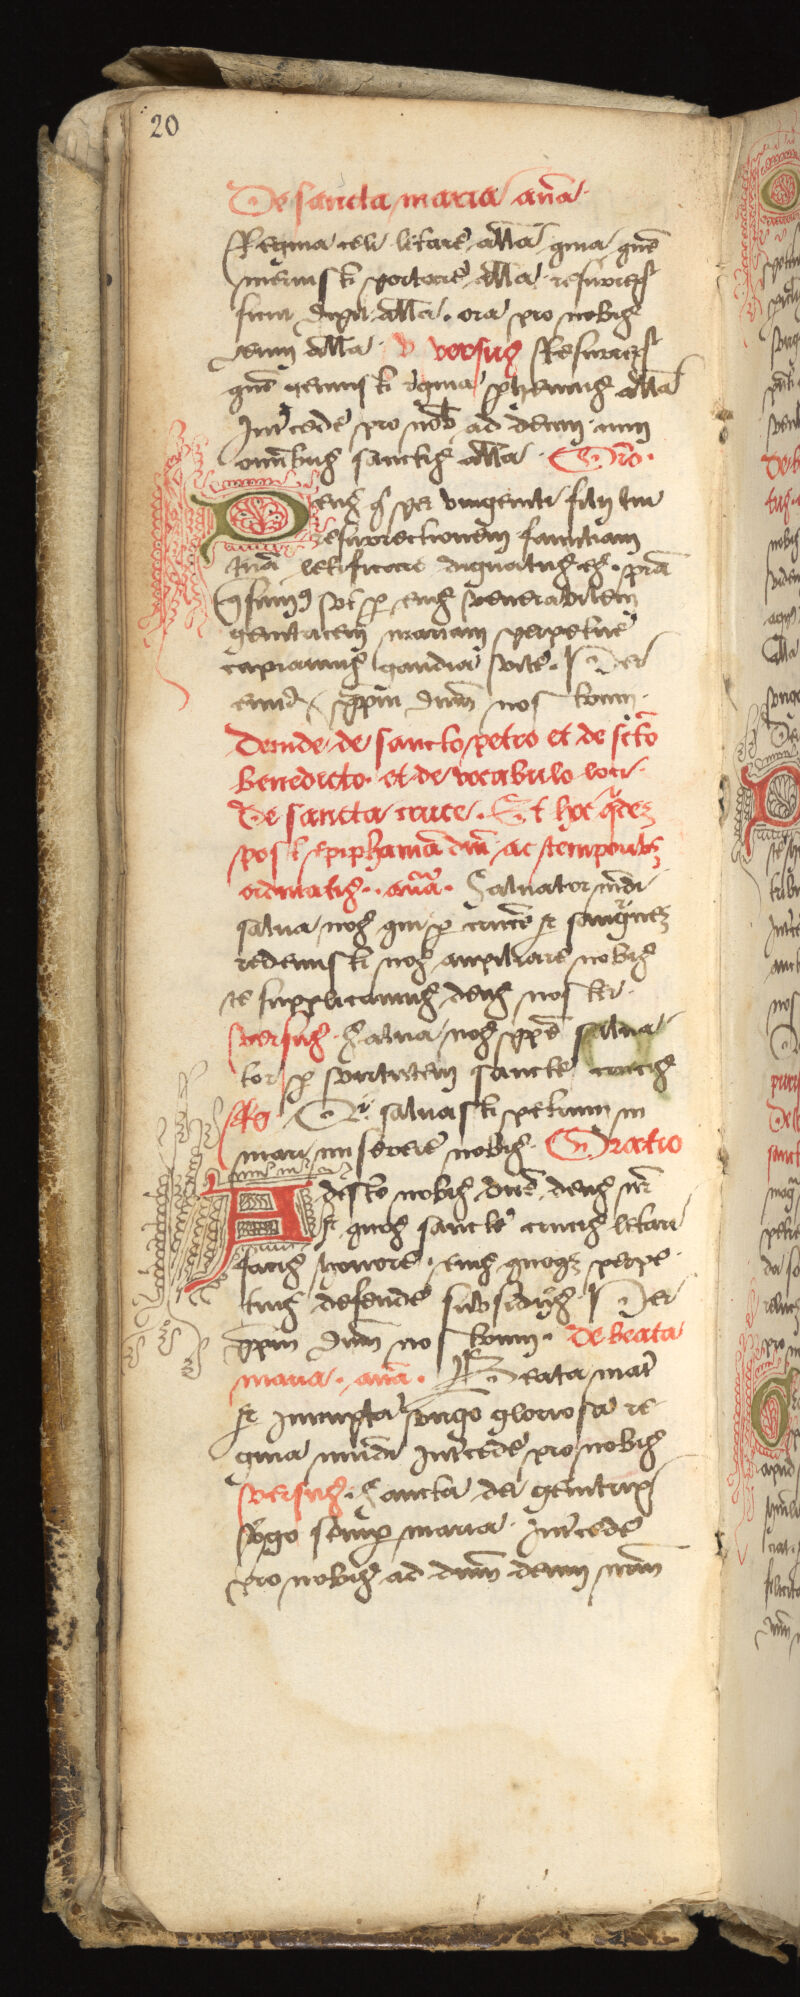 20
De sancta maria an̄a
Regina celi letare all̄a quia quē
meruisti portare all̄a resurrex
sicut dixit all̄a. ora pro nobis
deum all̄a. v versus Resurrex
quē genuisti regina phenius all̄a
Int̄cede pro nob ad deum cum
omībus sanctis all̄a. Oro.
Deus q per unigeniti filij tui
resurrectionem familiam
tuā letificare dignatus es. p̄ta
qsum9 vt p eius venerabilem
genitricem mariam perpetue
capiamus gaudia vite. Per
eund xp̄m dnm nostrum.
Deinde de sancto petro et de scto
Benedicto. et de vocabulo loci.
De sancta cruce. Et hoc qdez
post epiphaniā dm̄ ac temporibz
ordinatis. an̄a. Saluator mūdi
salua nos qui p crucē et sanguinez
redemisti nos auxiliare nobis
te supplicamus deus noster.
versus. Salua nos xp̄e salua
tor p virtutem sancte crucis
R. Qi saluasti petrum in
mari miserere nobis. Oratio
Adesto nobis dn̄e deus nr̄
et quos sancte crucis letari
facis honore. eius quoqz perpe
tuis defende subsidijs. Per
xp̄m dnm nostrum. De beata
maria. an̄a. Beata mat̄
et Innupta virgo gloriosa re
gina mūdi Int̄cede pro nobis
versus. Sancta dei genitrix
v̄go semp maria. Int̄cede
pro nobis ad dn̄m deum nrm̄